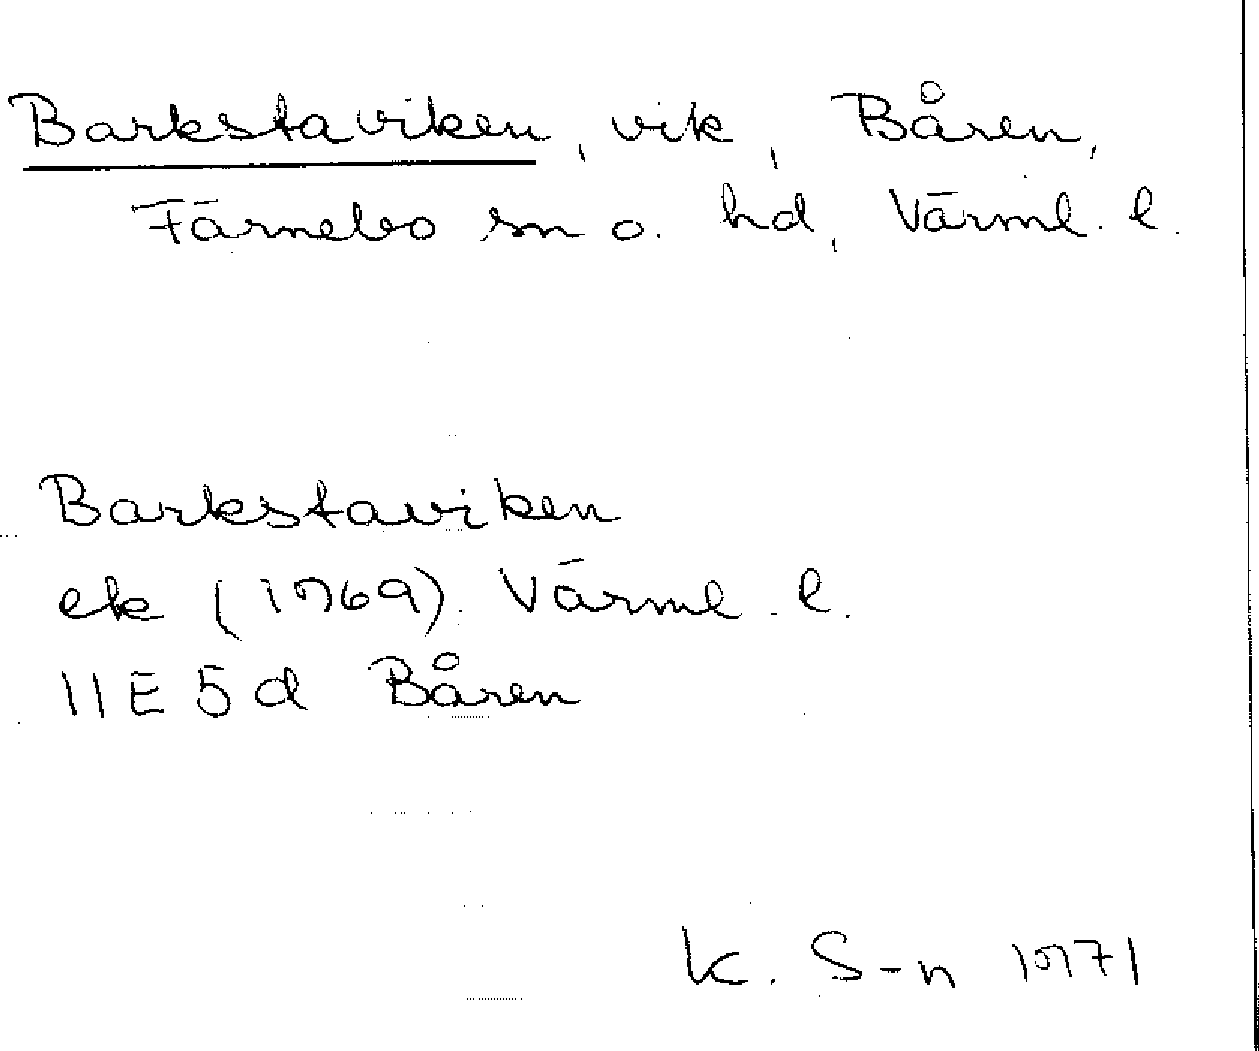 Barkstaviken, vik, Båren,
Färnebo sn o. hd, Värml. l.
Barkstaviken
ek (1969). Värml. l.
11E 5d Båren
K. S-n 1971